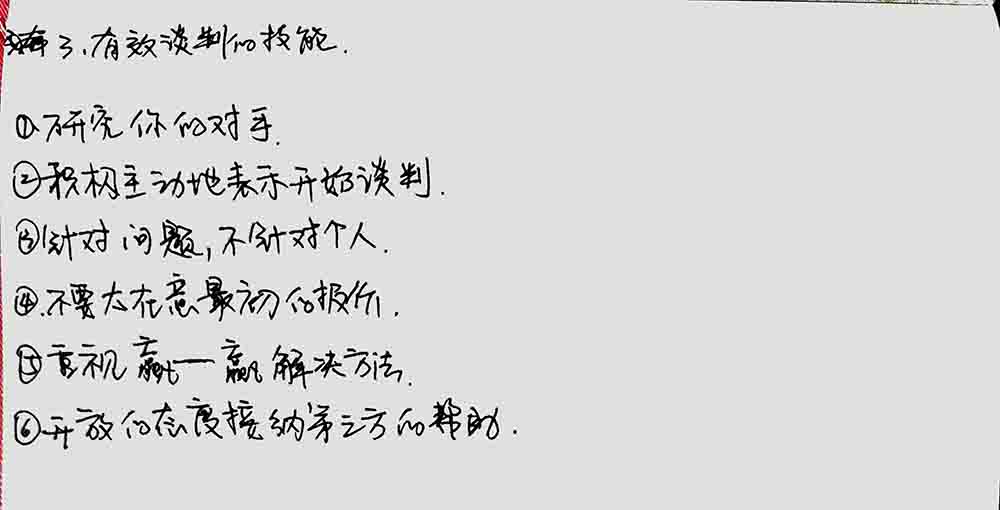 3、有效谈判的技能.
①研究你的对手.
②积极主动地表示开始谈判.
③针对问题,不针对个人.
④.不要太在意最初的报价.
⑤重视赢一赢解决方法.
⑥开放的态度接纳第三方的帮助.